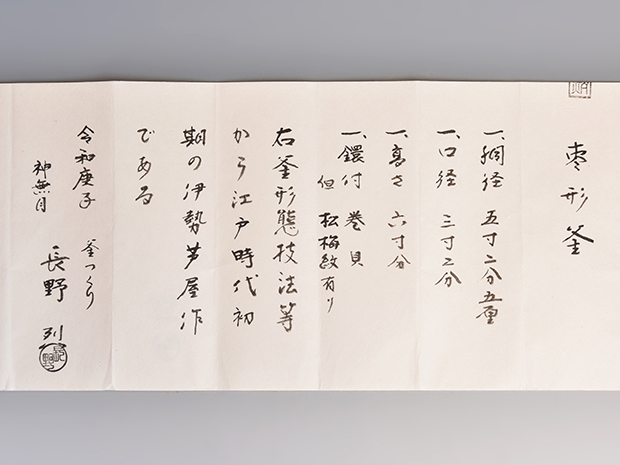 棗形釜
一、胴径 五寸二分五厘
一、口径 三寸二分
一、高さ 六寸分
一、鐶付 巻貝
但 松梅紋有り
右釜形態技法等
から江戸時代初
期の伊勢芦屋作
である
令和庚子 釜つくり
神無月
長野 烈